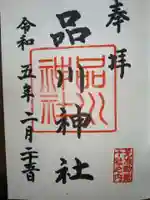 奉拝
十社之内
品川神社
品川
神社
令和五年二月